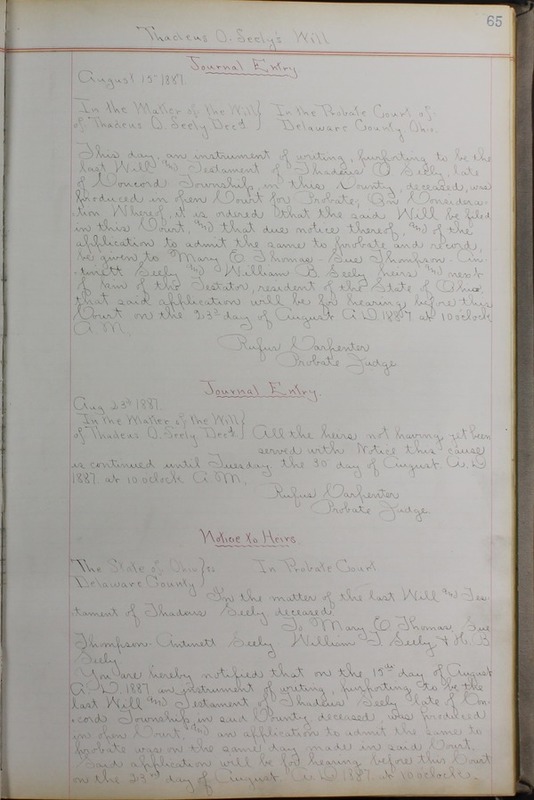 65
Thadeus O. Seely's Will
Journal Entry
August 15 1887.
In the Matter of the Will } In the Probate Court of
of Thadeus O. Seely Decd } Delaware County Ohio.
This day an instrument of writing, purporting to be the
last Will and Testament of Thadeus O. Seely, late
of Concord Township, in this County, deceased, was
produced in open Court for Probate; On Considera-
tion Whereof, it is ordered that the said Will be filed
in this Court, and that due notice thereof, and of the
application to admit the same to probate and record,
be given to Mary E Thomas - Sue Thompson -
Seely and William Seely heirs and next
of kin of the Testator, resident of the State of Ohio,
that said application will be for hearing before this
Court on the 23d day of August A D 1887 at 10 oclock
A.M.
Rufus Carpenter
Probate Judge
Journal Entry.
Aug 23d 1887.
In the Matter of the Will }
of Thadeus O. Seely Decd } All the heirs not having yet been
served with Notice this cause
is continued until Tuesday the 30 day of August A. D
1887 at 10 oclock A.M,
Rufus Carpenter
Probate Judge
Notice to Heirs
The State of Ohio } ss In Probate Court
Delaware County }
In the matter of the last Will and Tes-
tament of Thadeus Seely deceased.
To Mary E Thomas, Sue
Thompson - Seely William Seely &
Seely.
You are hereby notified that on the 15th day of August
A. D. 1887 an instrument of writing, purporting to be the
last Will and Testament of Thadeus Seely late of Con-
cord Township in said County deceased, was produced
in open Court, and an application to admit the same to
probate was on the same day made in said Court.
Said application will be for hearing before this Court
on the 23rd day of August A. D 1887 at 10 oclock.